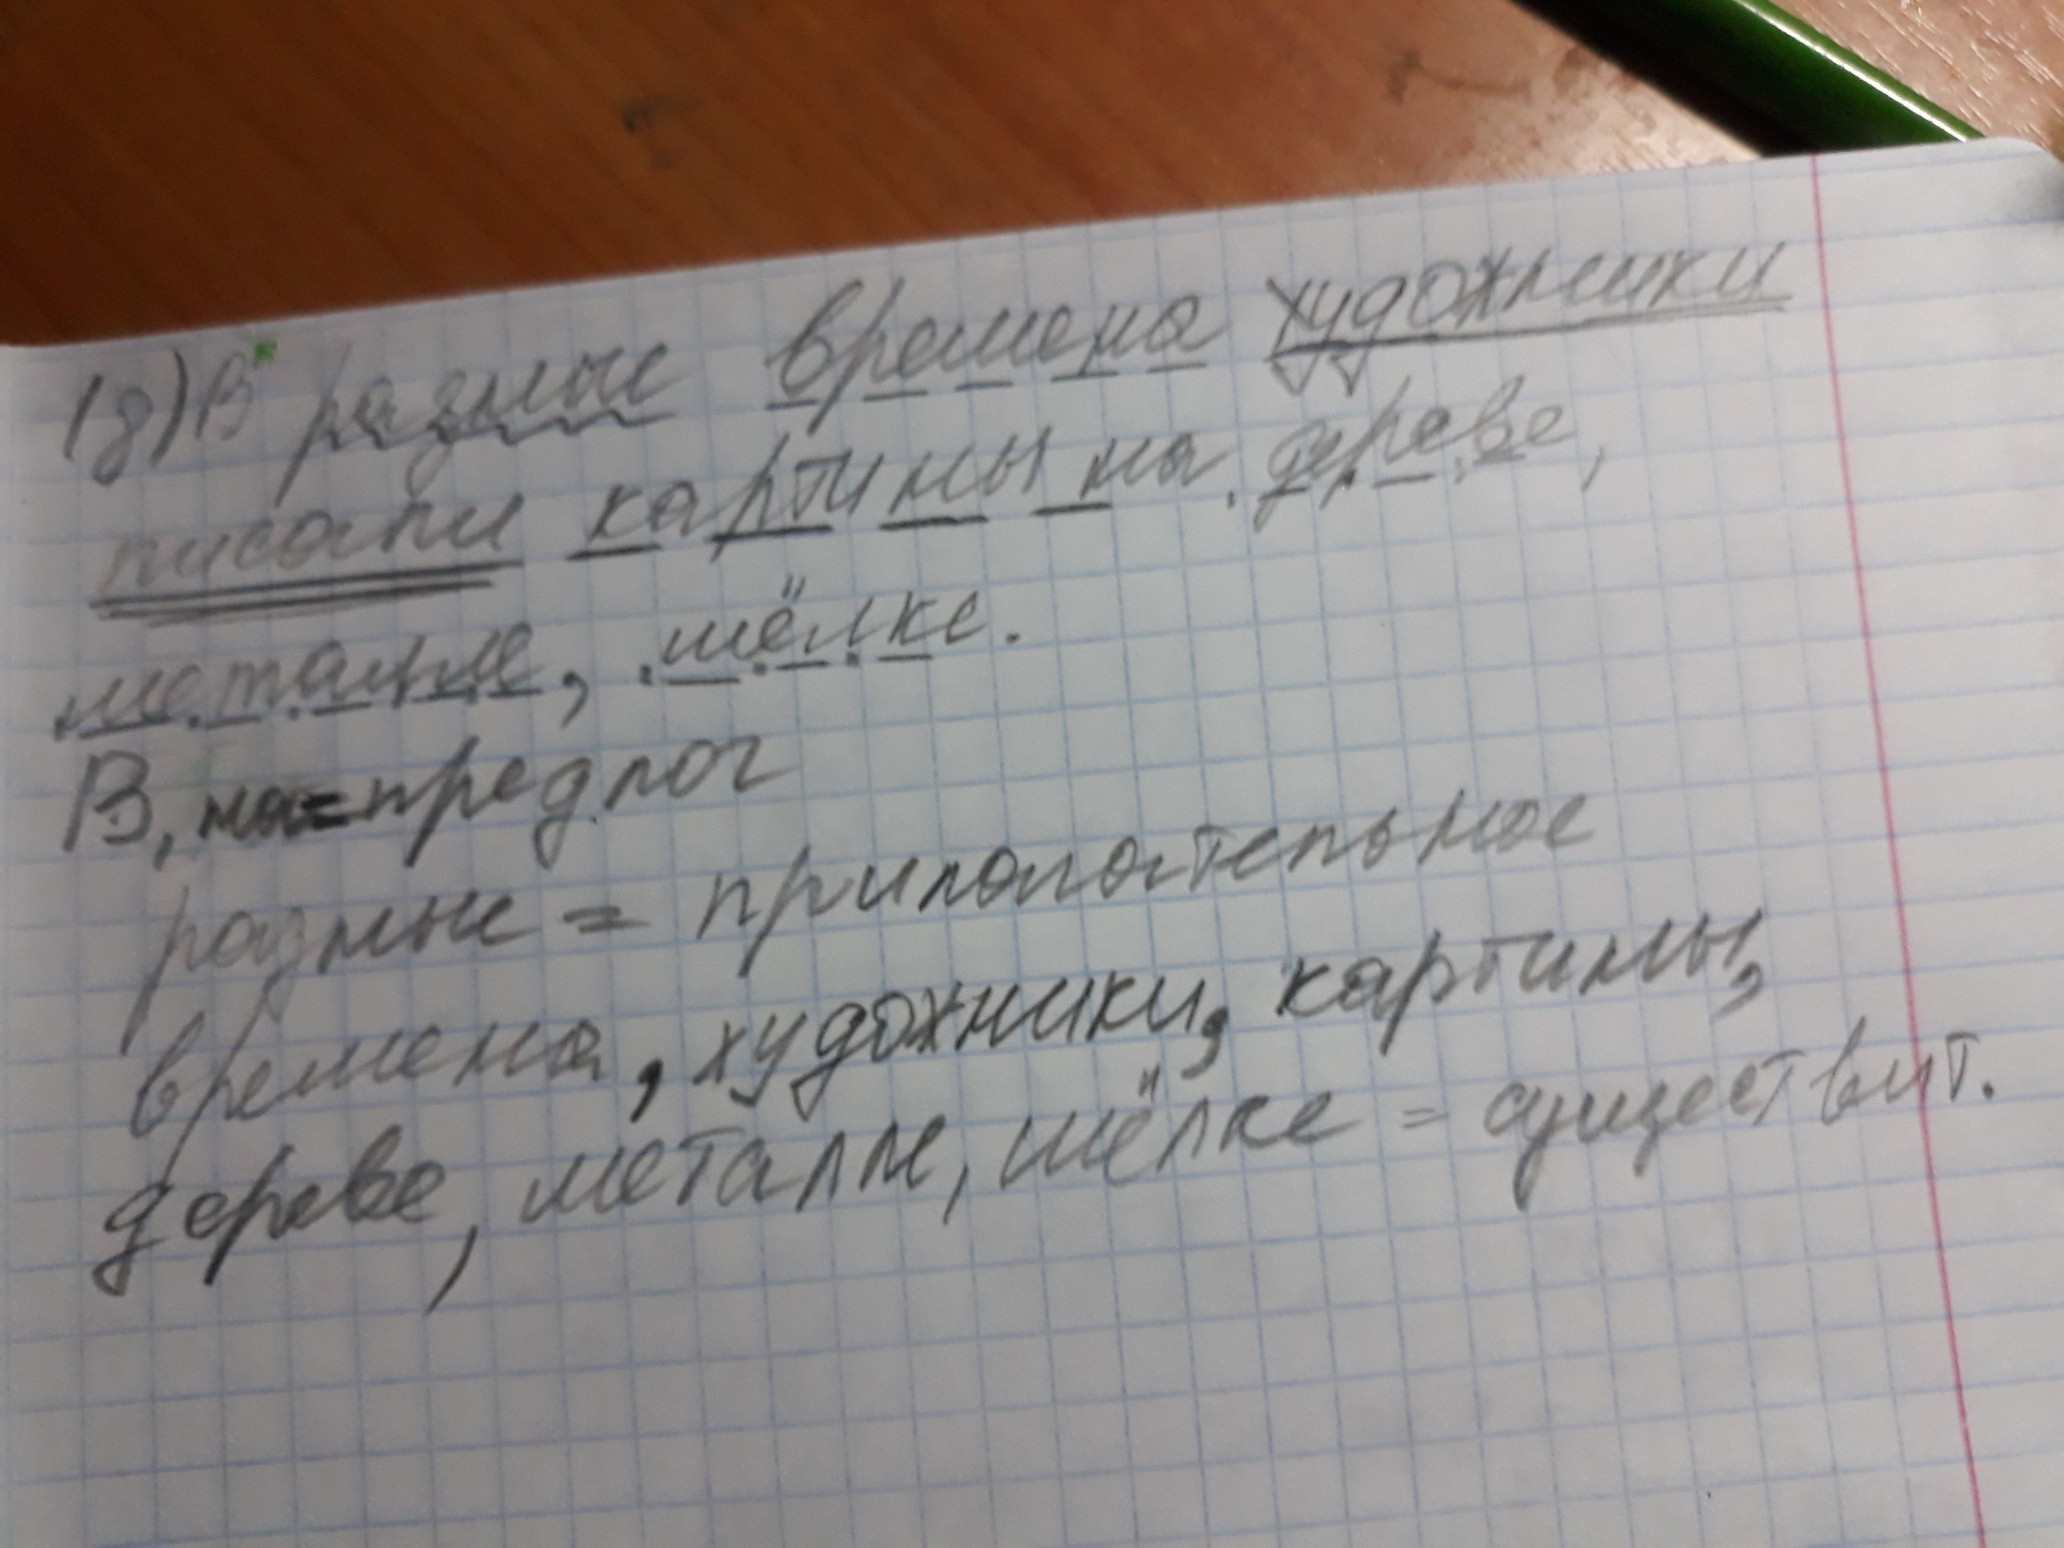 (д) В разные времена художники
писали картины на дереве,
металле, шёлке.
В, на = предлог
разные = прилогательное
времена, художники, картины,
дереве, металле, шёлке = существит.